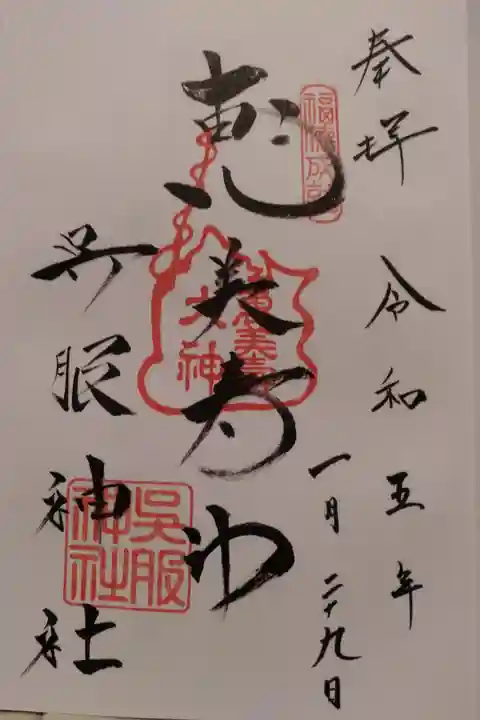 奉拝 令和五年
一月二十九日
福徳成就
恵美寿
恵美寿
大神
呉服神社
呉服
神社